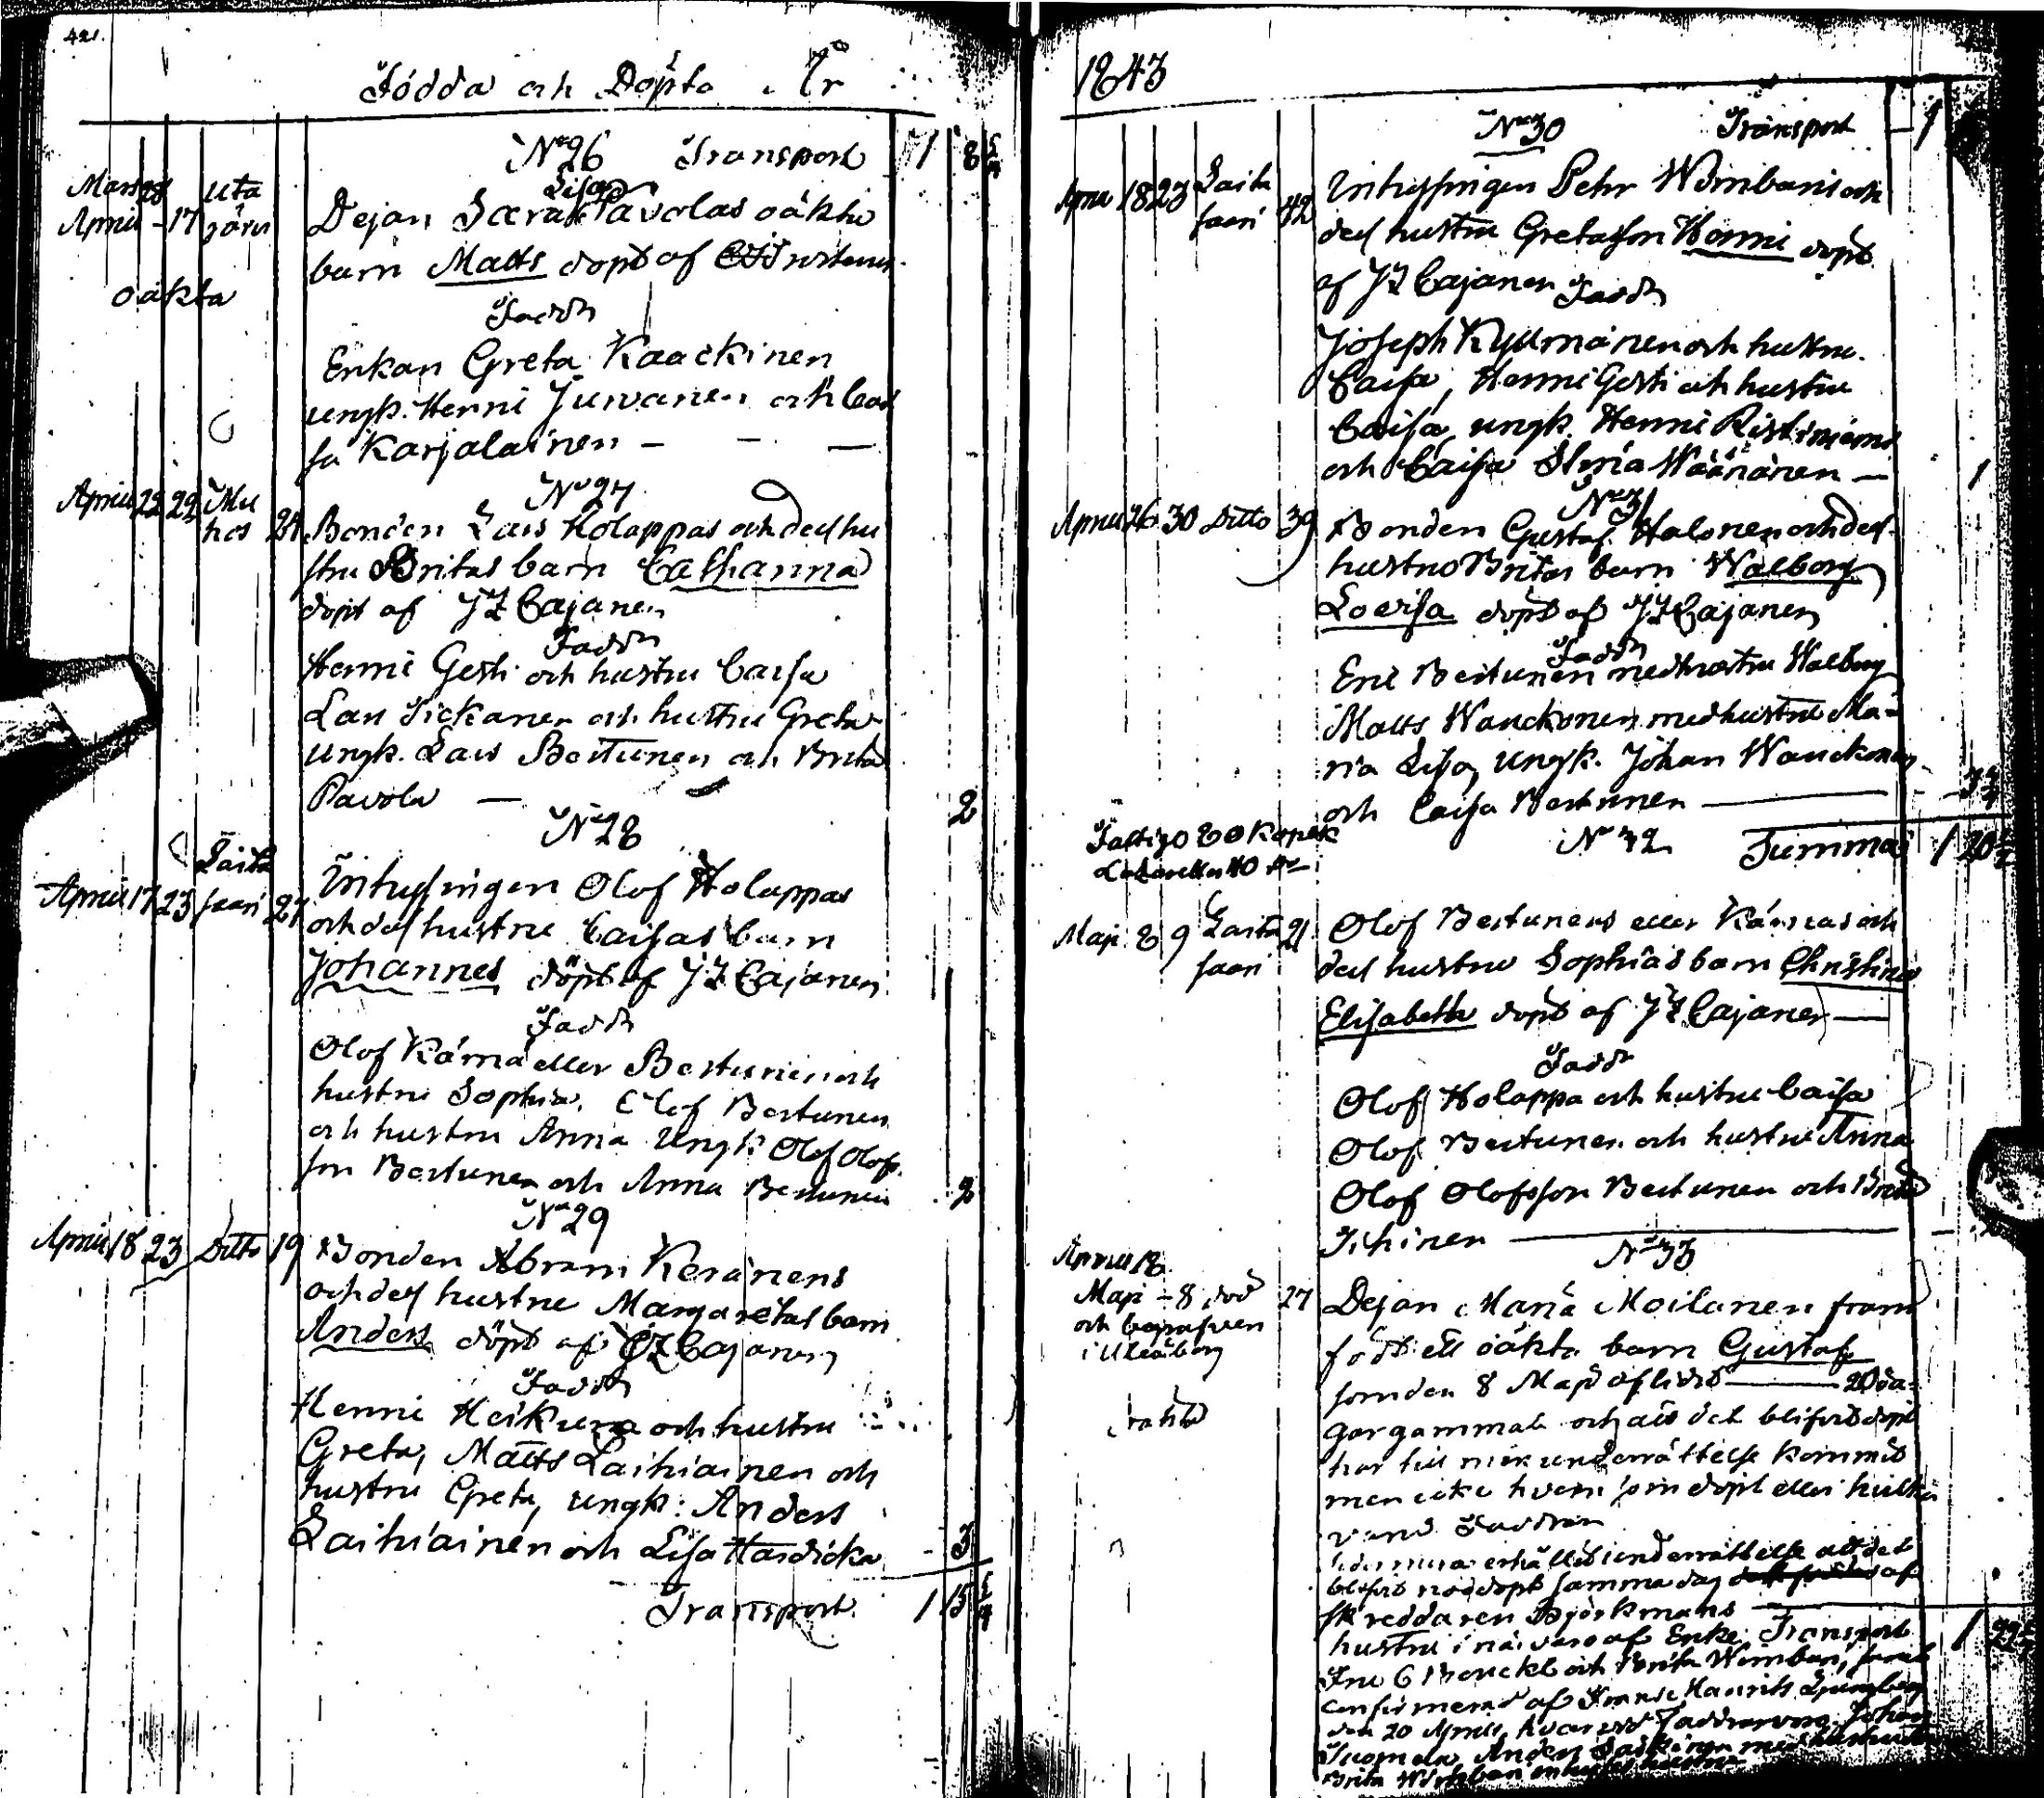 421.
Födda och Döpta År
No 26 Transport 1 8
Mars 28 Uta
April - 17 järvi
Lisa
Dejan Sara Pavolas oäkta
barn Matts döpt af
oäkta
Fadd
Enkan Greta Kaackinen
ungk. Henric Juvanen och Cai
sa Karjalainen — — —
No 27
April 22 22 Mu
hos 24 Bonden Lars Holappas och dess hu
stru Britas barn Catharina
döpt af JF Cajanen
Fadd
Henric Gesti och hustru Caisa
Lars Tickanen och hustru Greta
ungk. Lars Bertunen och Brita
Pavola — 2
No 28
Laita
April 17 23 saari 27 Inhysingen Olof Holappas
och dess hustru Caisas barn
Johannes döpt af JF Cajanen
Fadd
Olof Kärnä eller Bertunen och
hustru Sophia, Olof Bertunen
och hustru Anna Ungk Olof Olofs
son Bertunen och Anna Bertunen 2
No 29
April 18 23 Ditto 19 Bonden Abram Keränens
och dess hustru Margaretas barn
Anders döpt af JF Cajanen
Fadd
Henric Heikura och hustru
Greta, Matts Laihiainen och
hustru Greta, ungk: Anders
Laihiainen och Lisa Hardicka 3
Transport 1 15
1843
No 30 Transport 1
April 18 23 Laita
saari 42 Inhysingen Pehr Wimbaris och
dess hustru Gretas son Henric döpt
af JF Cajanen Fadd
Joseph Kyllmänen och hustru
Caisa, Henric Gesti och hustru
Caisa, ungk. Henric Ristiniemi
och Caisa Stina Wäänänen — 1
No 31
April 26 30 Ditto 39 Bonden Gustaf Halonen och dess
hustru Britas barn Walborg
Lovisa döpt af JF Cajanen
Fadd
Eric Bertunen med hustru Walborg
Matts Wanckonen med hustru Ma-
ria Lisa, ungk. Johan Wanckonen
och Caisa Bertunen —
Fattigo 80 Kopek
Lazarettet 40
No 32 Summa 1 20
Maji 8 9 Laita 21
saari
Olof Bertunens eller Kärnäs och
dess hustru Sophias barn Christina
Elisabeth döpt af JF Cajanen —
Fadd
Olof Holappa och hustru Caisa
Olof Bertunen och hustru Anna
Olof Olofsson Bertunen och Brita
Tihinen —
No 33
April 18
Maji - 8 död 27
och begrafven
i Uleåborg
oäkta
Dejan Maria Moilanen fram
födt ett oäkta barn Gustaf
som den 8 Maji aflidit — 20 da-
gar gammalt och att det blifvit döpt
har till min underrättelse kommit
men icke hvem som döpt eller hvilka
varit Faddrar
erhållit underrättelse att det
blifvit nöddöpt samma dag af
skreddaren Björkmans
hustru i närvaro af Enke Transport 1 22
Fru och Brita Wimbari, samt
confirmerad af Frans Maurits Ljungberg
den 20 April, hvarvid Faddrar voro Johan
Suomela, Anders med hustru
Brita